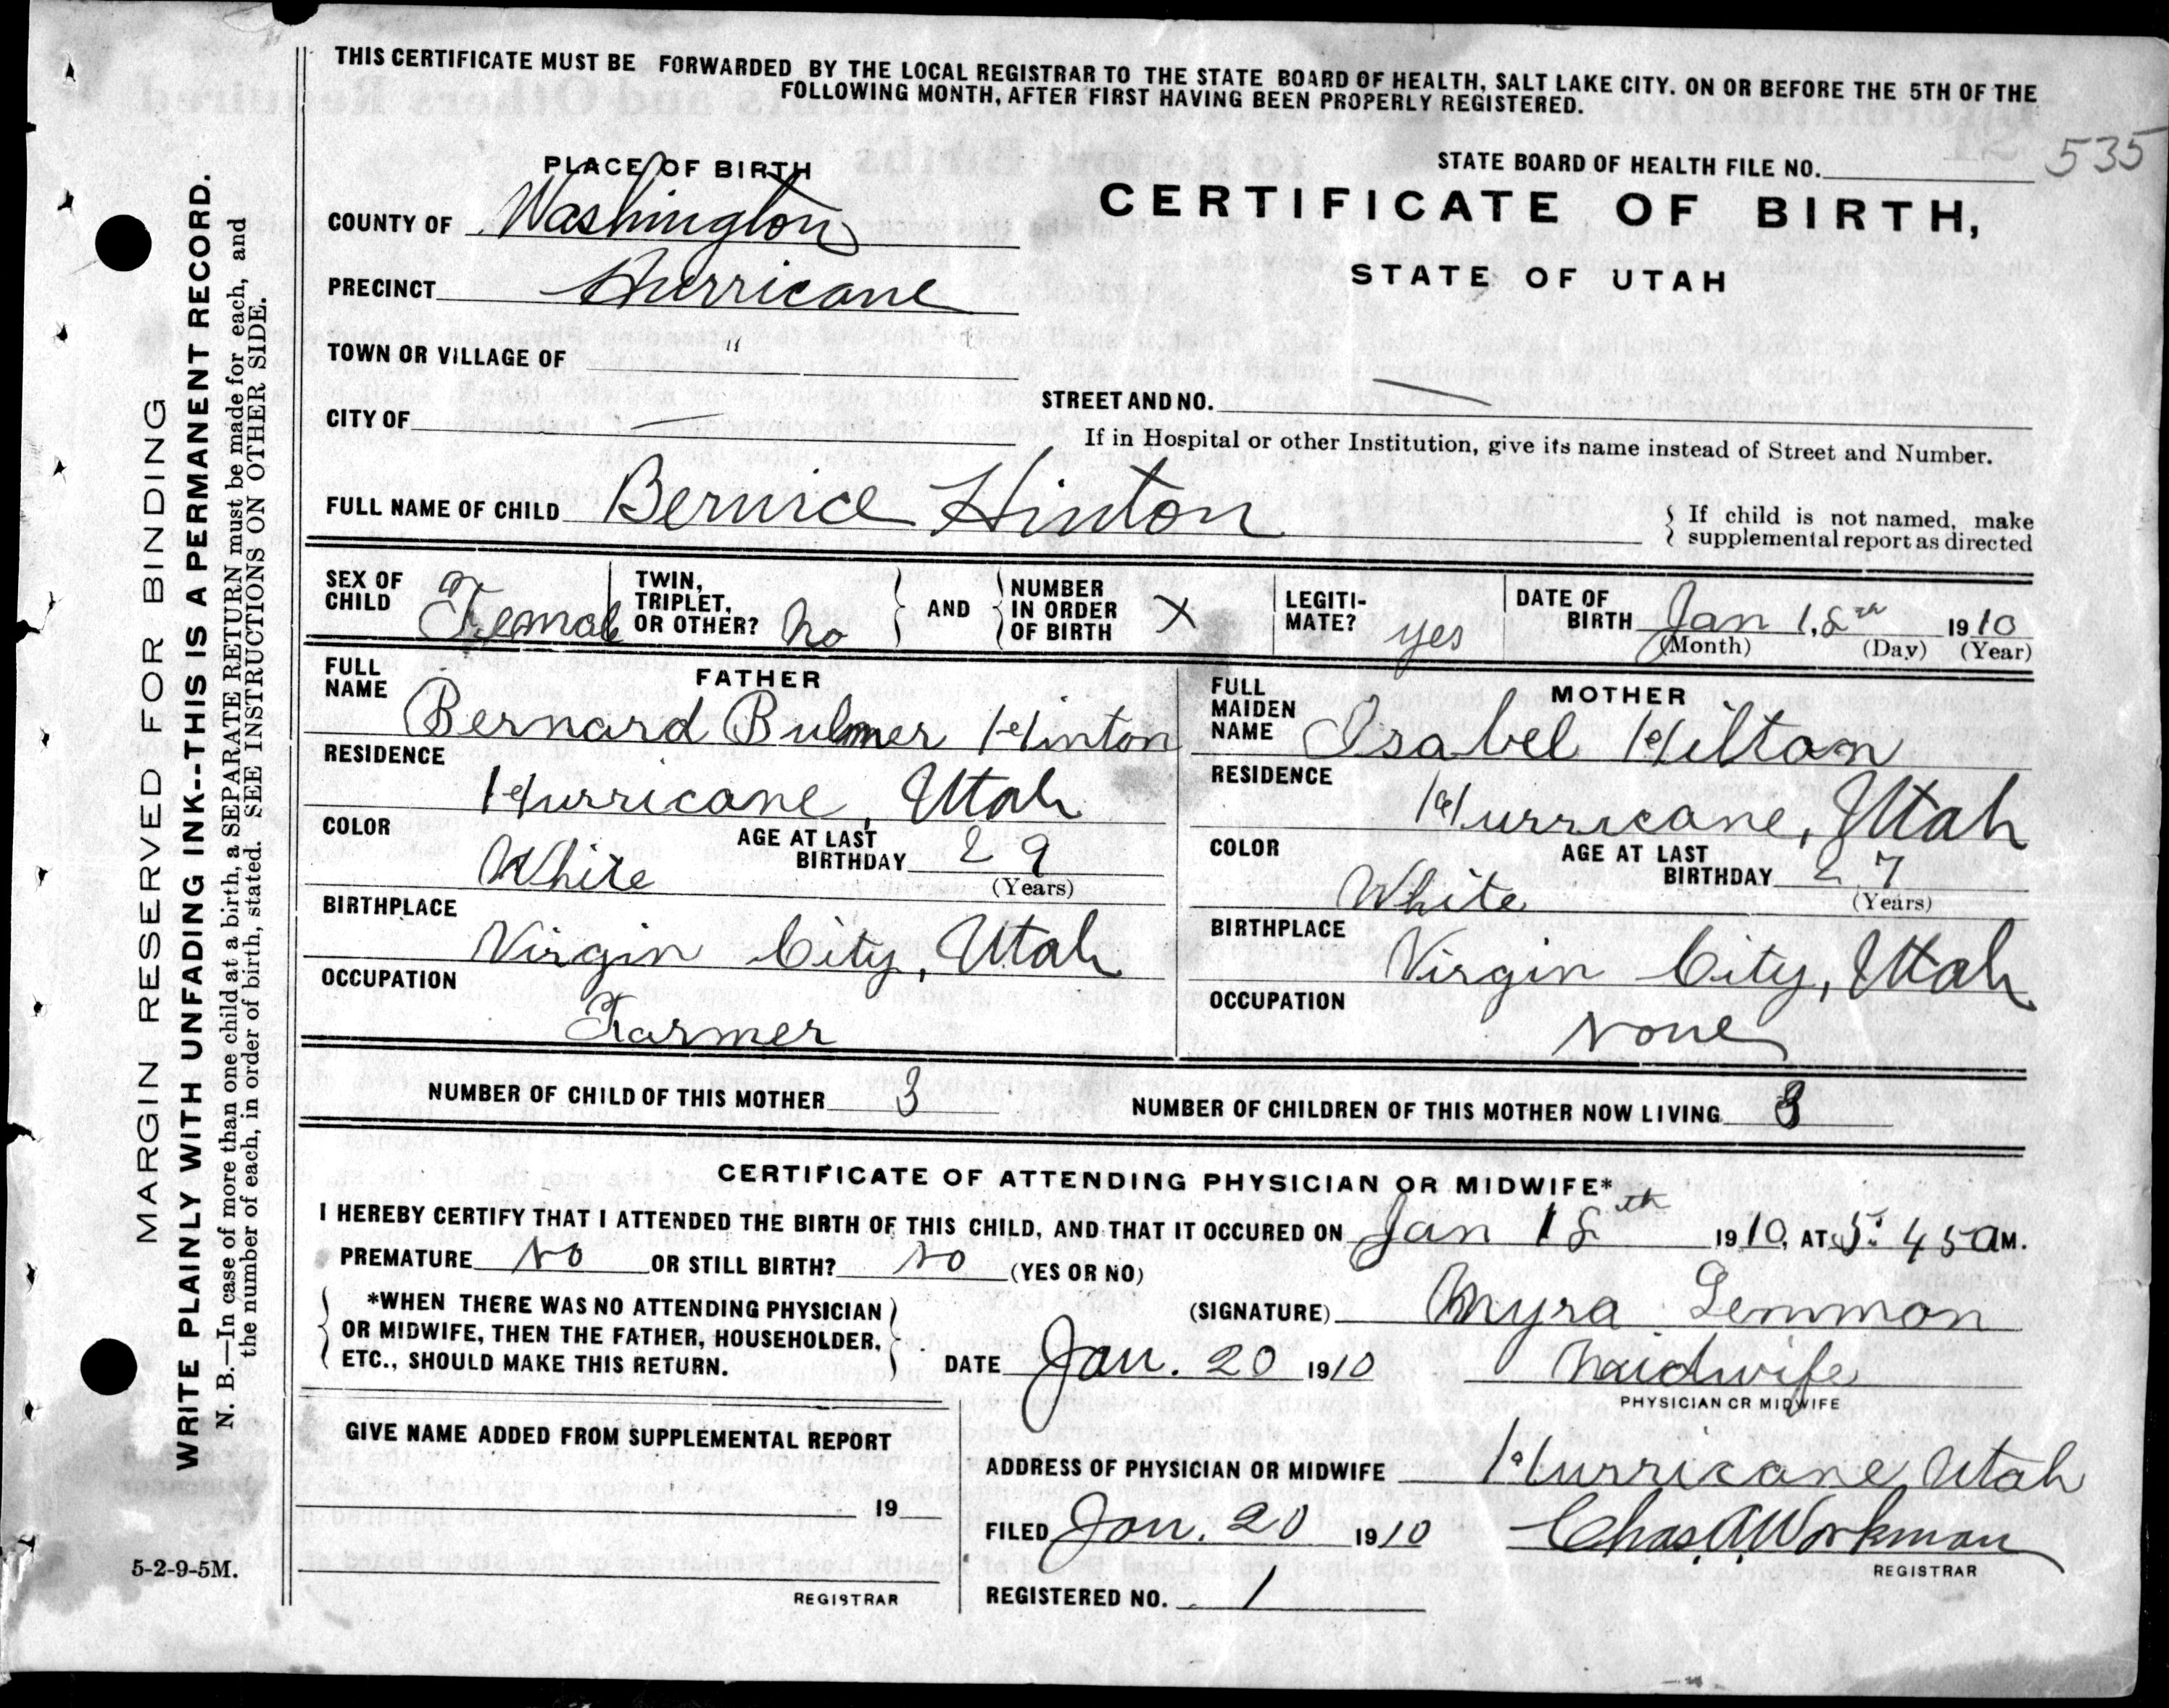 THIS CERTIFICATE MUST BE FORWARDED BY THE LOCAL REGISTRAR TO THE STATE BOARD OF HEALTH, SALT LAKE CITY. ON OR BEFORE THE 5TH OF THE
FOLLOWING MONTH, AFTER FIRST HAVING BEEN PROPERLY REGISTERED.
PLACE OF BIRTH
STATE BOARD OF HEALTH FILE NO. 535
COUNTY OF Washington
CERTIFICATE OF BIRTH,
PRECINCT Hurricane
STATE OF UTAH
TOWN OR VILLAGE OF "
CITY OF —
STREET AND NO. —
If in Hospital or other Institution, give its name instead of Street and Number.
FULL NAME OF CHILD Bernice Hinton
If child is not named, make
supplemental report as directed
SEX OF CHILD Female
TWIN, TRIPLET, OR OTHER? No
AND
NUMBER IN ORDER OF BIRTH X
LEGITI-MATE? yes
DATE OF BIRTH Jan 18th 1910
(Month) (Day) (Year)
FATHER
FULL NAME Bernard Bulmer Hinton
RESIDENCE
Hurricane, Utah
COLOR White
AGE AT LAST BIRTHDAY 29
(Years)
BIRTHPLACE
Virgin City, Utah
OCCUPATION
Farmer
MOTHER
FULL MAIDEN NAME Isabel Hilton
RESIDENCE
Hurricane, Utah
COLOR White
AGE AT LAST BIRTHDAY 27
(Years)
BIRTHPLACE
Virgin City, Utah
OCCUPATION
None
NUMBER OF CHILD OF THIS MOTHER 3
NUMBER OF CHILDREN OF THIS MOTHER NOW LIVING 3
CERTIFICATE OF ATTENDING PHYSICIAN OR MIDWIFE*
I HEREBY CERTIFY THAT I ATTENDED THE BIRTH OF THIS CHILD, AND THAT IT OCCURED ON Jan 18th 1910, AT 5:45 A M.
PREMATURE No OR STILL BIRTH? No (YES OR NO)
*WHEN THERE WAS NO ATTENDING PHYSICIAN
OR MIDWIFE, THEN THE FATHER, HOUSEHOLDER,
ETC., SHOULD MAKE THIS RETURN.
(SIGNATURE) Myra Lemmon
DATE Jan. 20 1910
Maidwife
PHYSICIAN OR MIDWIFE
GIVE NAME ADDED FROM SUPPLEMENTAL REPORT
19
REGISTRAR
ADDRESS OF PHYSICIAN OR MIDWIFE Hurricane Utah
FILED Jan. 20 1910 Chas. A. Workman
REGISTRAR
REGISTERED NO. 1
5-2-9-5M.
MARGIN RESERVED FOR BINDING
WRITE PLAINLY WITH UNFADING INK--THIS IS A PERMANENT RECORD.
N. B.—In case of more than one child at a birth, a SEPARATE RETURN must be made for each, and
the number of each, in order of birth, stated. SEE INSTRUCTIONS ON OTHER SIDE.